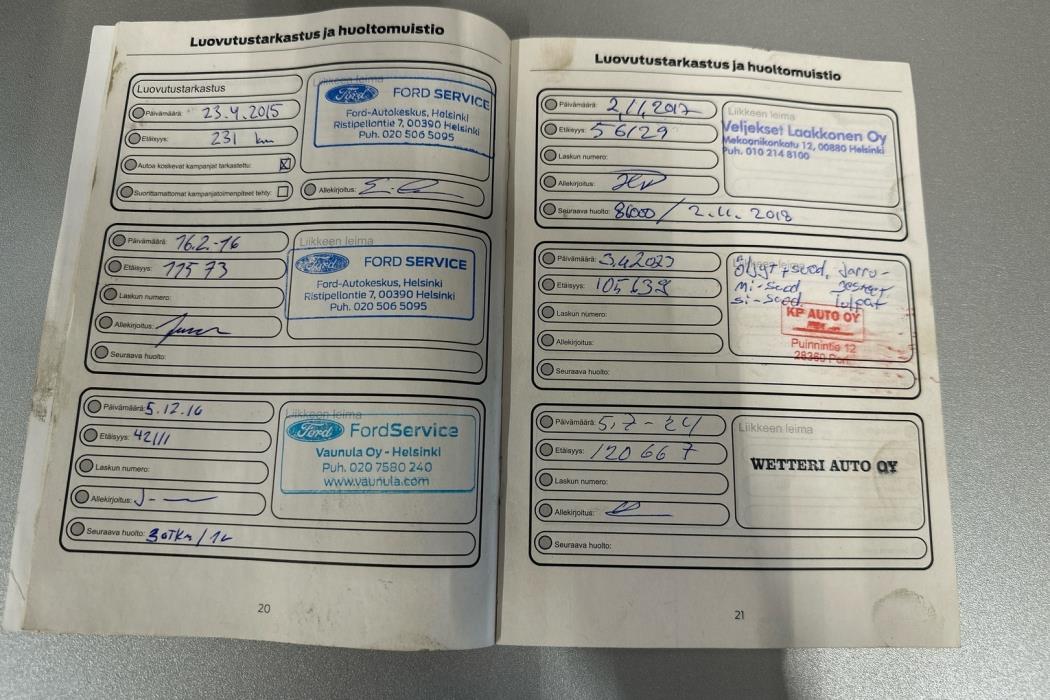 Luovutustarkastus ja huoltomuistio
Luovutustarkastus
Päivämäärä: 23.4.2015
Etäisyys: 231 km
Autoa koskevat kampanjat tarkastettu:
Suorittamattomat kampanjatoimenpiteet tehty:
Liikkeen leima
Ford FORD SERVICE
Ford-Autokeskus, Helsinki
Ristipellontie 7, 00390 Helsinki
Puh. 020 506 5095
Allekirjoitus:
Päivämäärä: 16.2.-16
Etäisyys: 11573
Laskun numero:
Allekirjoitus:
Seuraava huolto:
Liikkeen leima
Ford FORD SERVICE
Ford-Autokeskus, Helsinki
Ristipellontie 7, 00390 Helsinki
Puh. 020 506 5095
Päivämäärä: 5.12.16
Etäisyys: 42111
Laskun numero:
Allekirjoitus:
Seuraava huolto: 30TKm/1v
Liikkeen leima
Ford FordService
Vaunula Oy - Helsinki
Puh. 020 7580 240
www.vaunula.com
20
Luovutustarkastus ja huoltomuistio
Päivämäärä: 2.11.2017
Etäisyys: 56129
Laskun numero:
Allekirjoitus:
Seuraava huolto: 86000 / 2.11.2018
Liikkeen leima
Veljekset Laakkonen Oy
Mekaanikonkatu 12, 00880 Helsinki
Puh. 010 214 8100
Päivämäärä: 3.4.2023
Etäisyys: 105639
Laskun numero:
Allekirjoitus:
Seuraava huolto:
Öljyt+suod, Jarru-
mi-suod nesteet
si-suod tulpat
KP AUTO OY
Puinnintie 12
28360 Pori
Päivämäärä: 5.7-24
Etäisyys: 120667
Laskun numero:
Allekirjoitus:
Seuraava huolto:
Liikkeen leima
WETTERI AUTO OY
21